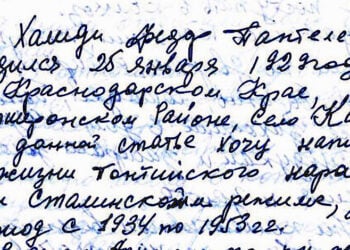 Халиди Федр Пантеле
дился 25 января 1929год
Краснодарском Крае,
шеронском Районе, село К
данной статье хочу напи
жизни понтийского наро
и Сталинском режиме,
иод с 1934 по 1953 гг.